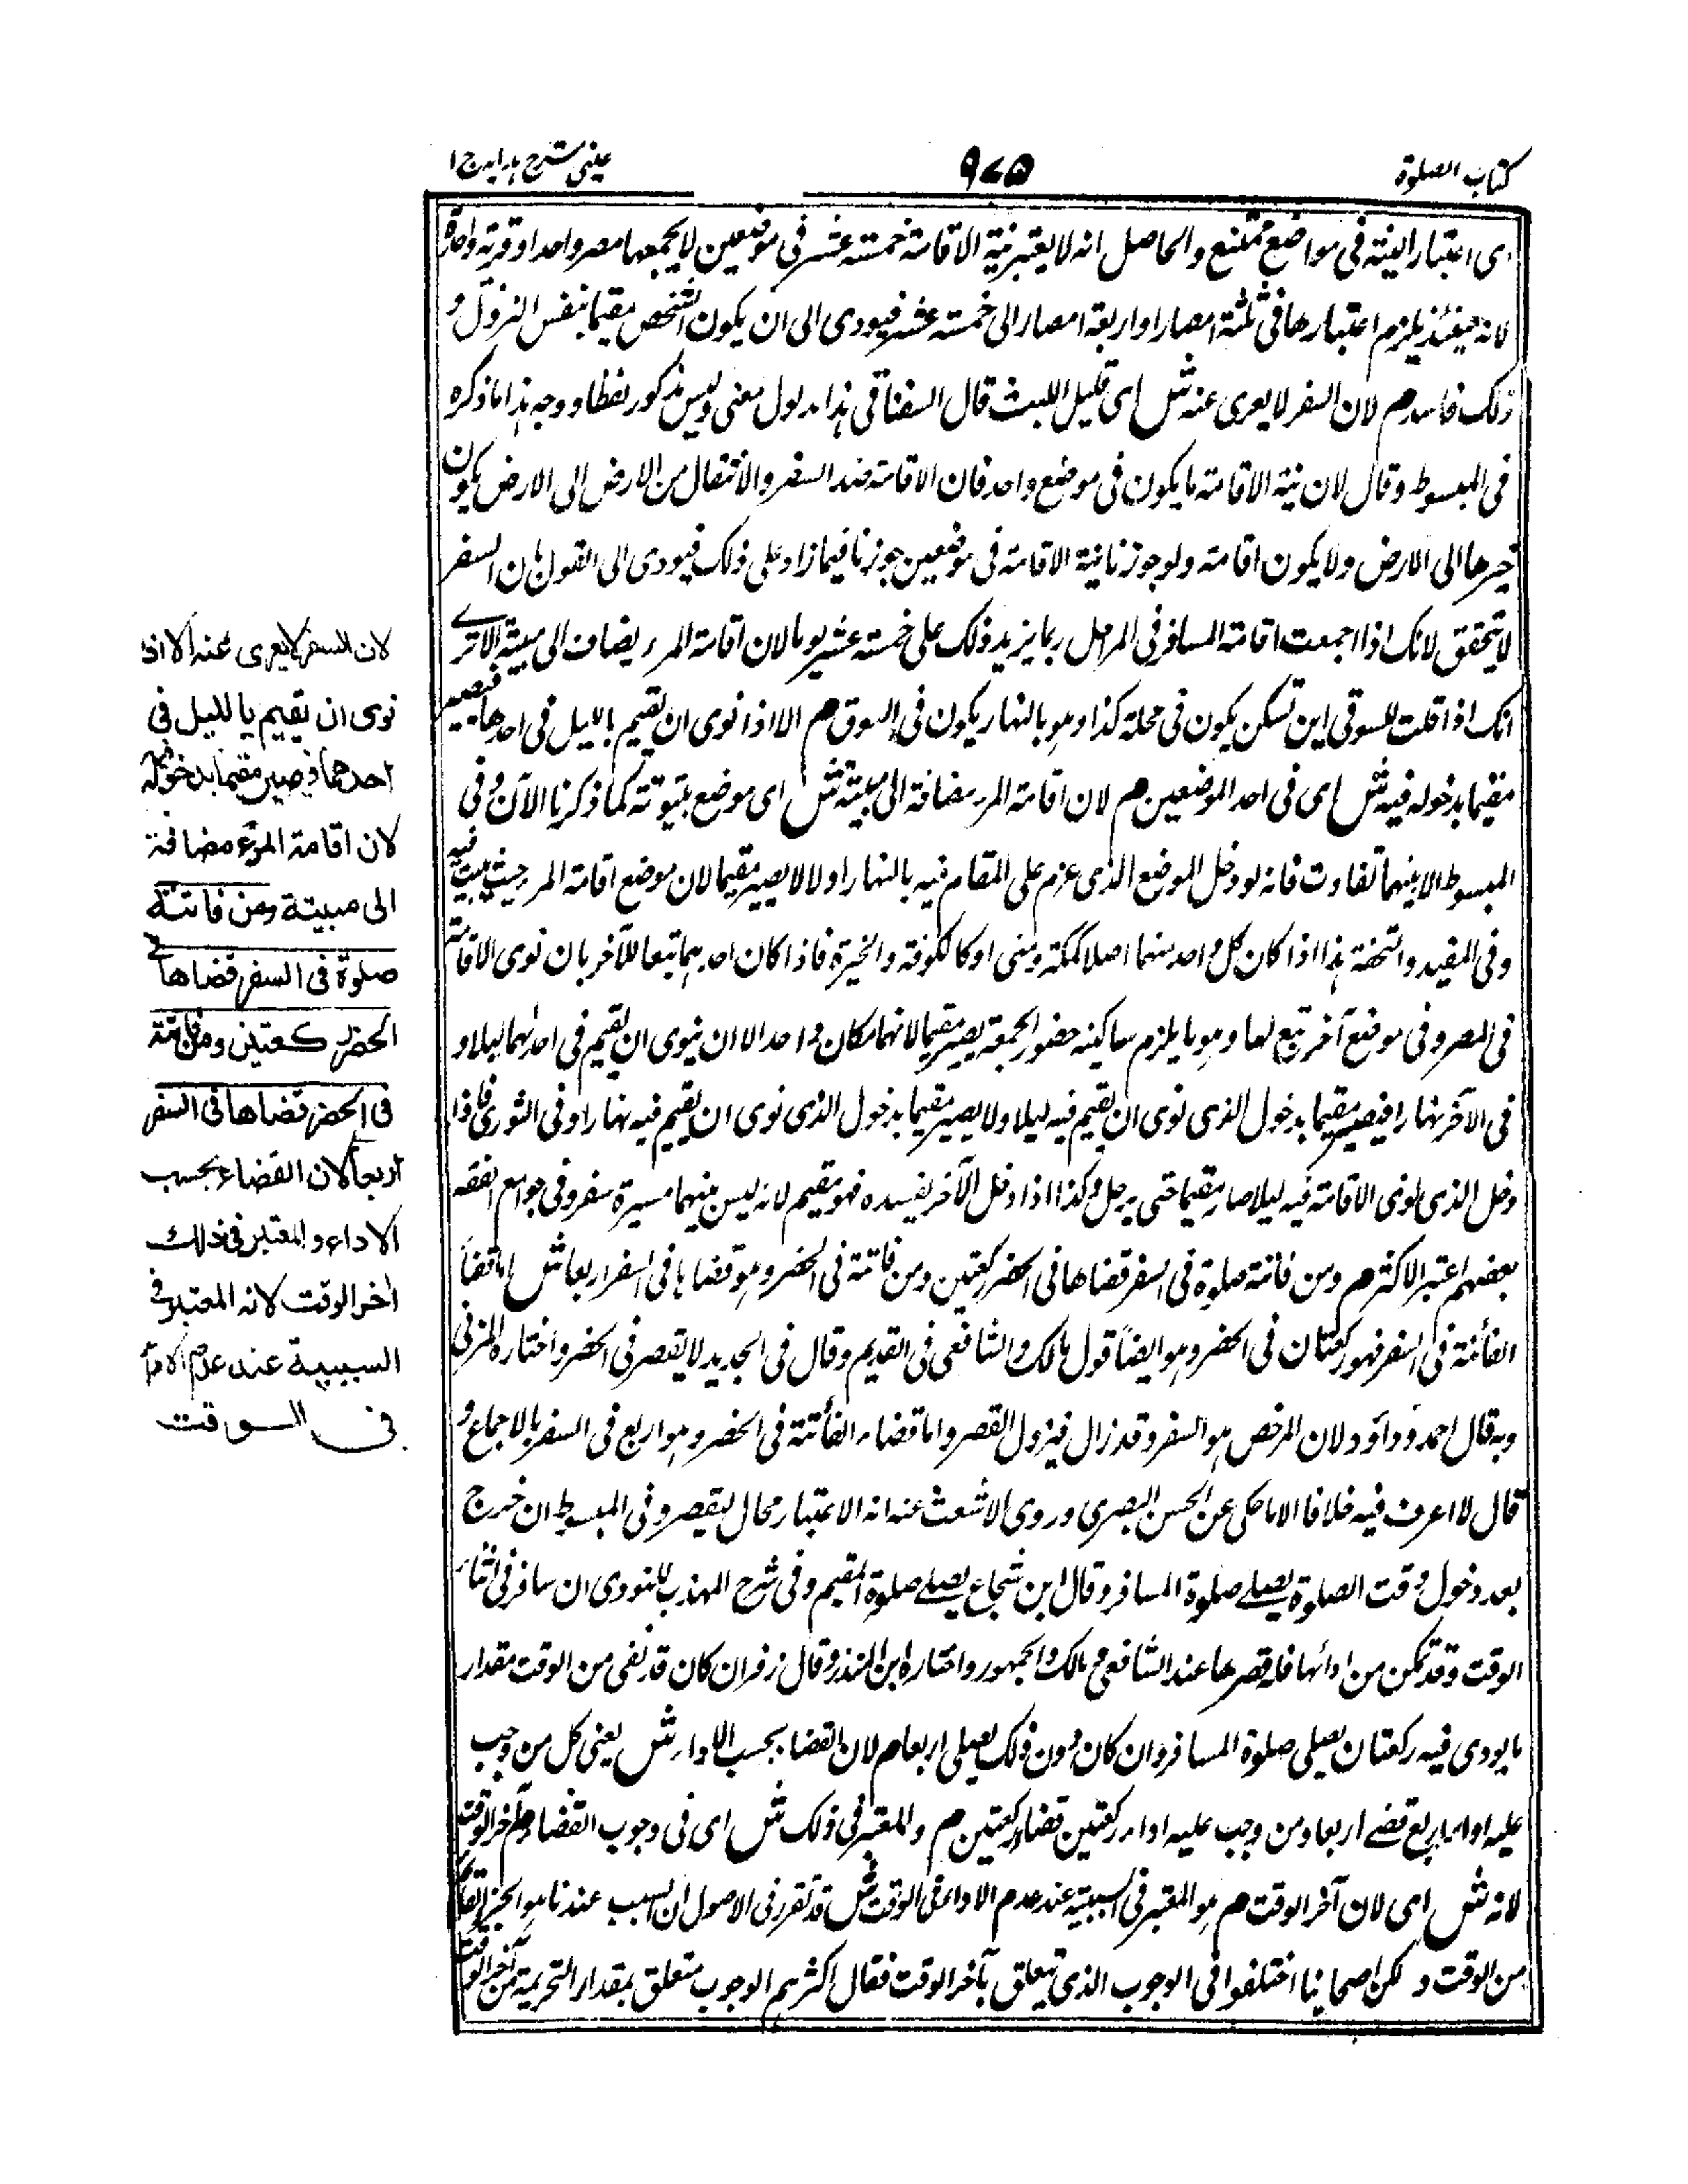 كتاب الصلوة
٩٧٥
عينى شرح هدايه ج ١
اى اعتبار النية فى مواضع ممتنع والحاصل انه لا يعتبر نية الاقامة خمسة عشر فى موضعين لا يجمعها مصر واحد او قرية واحدة
لانه حينئذ يلزم اعتبارها فى ثلثة امصار او اربعة امصار الى خمسة عشر فيودى الى ان يكون الشخص مقيما بنفس النزول و
ذلك فاسد م لان السفر لا يعرى عنه ش اى قليل اللبث قال السغناقى هذا مدلول معنى وليس مذكور لفظا ووجه هذا ما ذكره
فى المبسوط وقال لان نية الاقامة ما يكون فى موضع واحد فان الاقامة ضد السفر والانتقال من الارض الى الارض يكون
الى الارض ولا يكون اقامة ولو جوزنا نية الاقامة فى موضعين جوزنا فيما زاد على ذلك فيودى الى القول بان السفر
لا يتحقق لانك اذا اجمعت اقامة المسافر فى المراحل ربما يزيد ذلك على خمسة عشر يوما لان اقامة المرء يضاف الى مبيته الا ترى
انك اذا قلت للسوقى اين تسكن يكون فى محلة كذا وهو بالنهار يكون فى السوق م الا اذا نوى ان يقيم بالليل فى احدها فيصير
مقيما بدخوله فيه ش اى فى احد الموضعين م لان اقامة المرء مضافة الى مبيته ش اى موضع بيتوتته كما ذكرنا الآن وفى
المبسوط الا بينهما تفاوت فانه لو دخل الموضع الذى عزم على المقام فيه بالنهار اولا لا يصير مقيما لان موضع اقامة المرء حيث يبيت فيه
وفى المفيد والتحفة هذا اذا كان كل واحد منهما اصلا كمكة ومنى او كالكوفة والحيرة فاذا كان احدهما تبعا للآخر بان نوى الاقامة
فى المصر وفى موضع آخر تبع لها وهو ما يلزم ساكنيه حضور الجمعة يصير مقيما لانهما مكان واحد الا ان ينوى ان يقيم فى احدهما ليلا و
فى الآخر نهارا فيصير مقيما بدخول الذى نوى ان يقيم فيه ليلا ولا يصير مقيما بدخول الذى نوى ان يقيم فيه نهارا وفى الثورى فاذا
دخل الذى نوى الاقامة فيه ليلا صار مقيما حتى يرحل وكذا اذا دخل الآخر يفسده فهو مقيم لانه ليس بينهما مسيرة سفر وفى جوامع الفقه
بعضهم اعتبر الاكثر م ومن فاتته صلوة فى السفر قضاها فى الحضر ركعتين ومن فاتته فى الحضر وهو قضاها فى السفر اربعا ش اما قضاء
الفائتة فى السفر فهو ركعتان فى الحضر وهو ايضاً قول مالك والشافعى فى القديم وقال فى الجديد لا يقصر فى الحضر واختاره المزنى
وبه قال احمد وداؤد لان المرخص هو السفر وقد زال فيزول القصر واما قضاء الفائتة فى الحضر وهو اربع فى السفر بالاجماع و
قال لا اعرف فيه خلافا الا ما حكى عن الحسن البصرى وروى الاشعث عنه انه الاعتبار بحال ليقصر وفى المبسوط ان خرج
بعد دخول وقت الصلوة يصلے صلوة المسافر وقال ابن شجاع يصلے صلوة المقيم وفى شرح المهذب للنووى ان سافر فى اثناء
الوقت وقد تمكن من ادائها فله قصرها عند الشافعى ومالك والجمهور واختاره ابن المنذر وقال زفر ان كان قد بقى من الوقت مقدار
ما يودى فيه ركعتان يصلى صلوة المسافر وان كان دون ذلك يصلى اربعا م لان القضاء بحسب الاداء ش يعنى كل من وجب
عليه اداء اربع قضے اربعا ومن وجب عليه اداء ركعتين قضاء ركعتين م والمعتبر فى ذلك ش اى فى وجوب القضاء م آخر الوقت
لانه ش اى لان آخر الوقت م هو المعتبر فى السببية عند عدم الاداء فى الوقت ش قد تقرر فى الاصول ان السبب عندنا هو الجزء القائم
من الوقت ولكن اصحابنا اختلفوا فى الوجوب الذى يتعلق بآخر الوقت فقال اكثرهم الوجوب متعلق بمقدار التحريمة من آخر الوقت
لان السفر لا يعرى عنه الا اذا
نوى ان يقيم بالليل فى
احدهما فيصير مقيما بدخوله
لان اقامة المرء مضافة
الى مبيتة ومن فاتتة
صلوة فى السفر قضاها فى
الحضر ركعتين ومن فاتتة
فى الحضر قضاها فى السفر
اربعا لان القضاء بحسب
الاداء والمعتبر فى ذلك
اخر الوقت لانه المعتبر فى
السببية عند عدم الاداء
فى الوقت